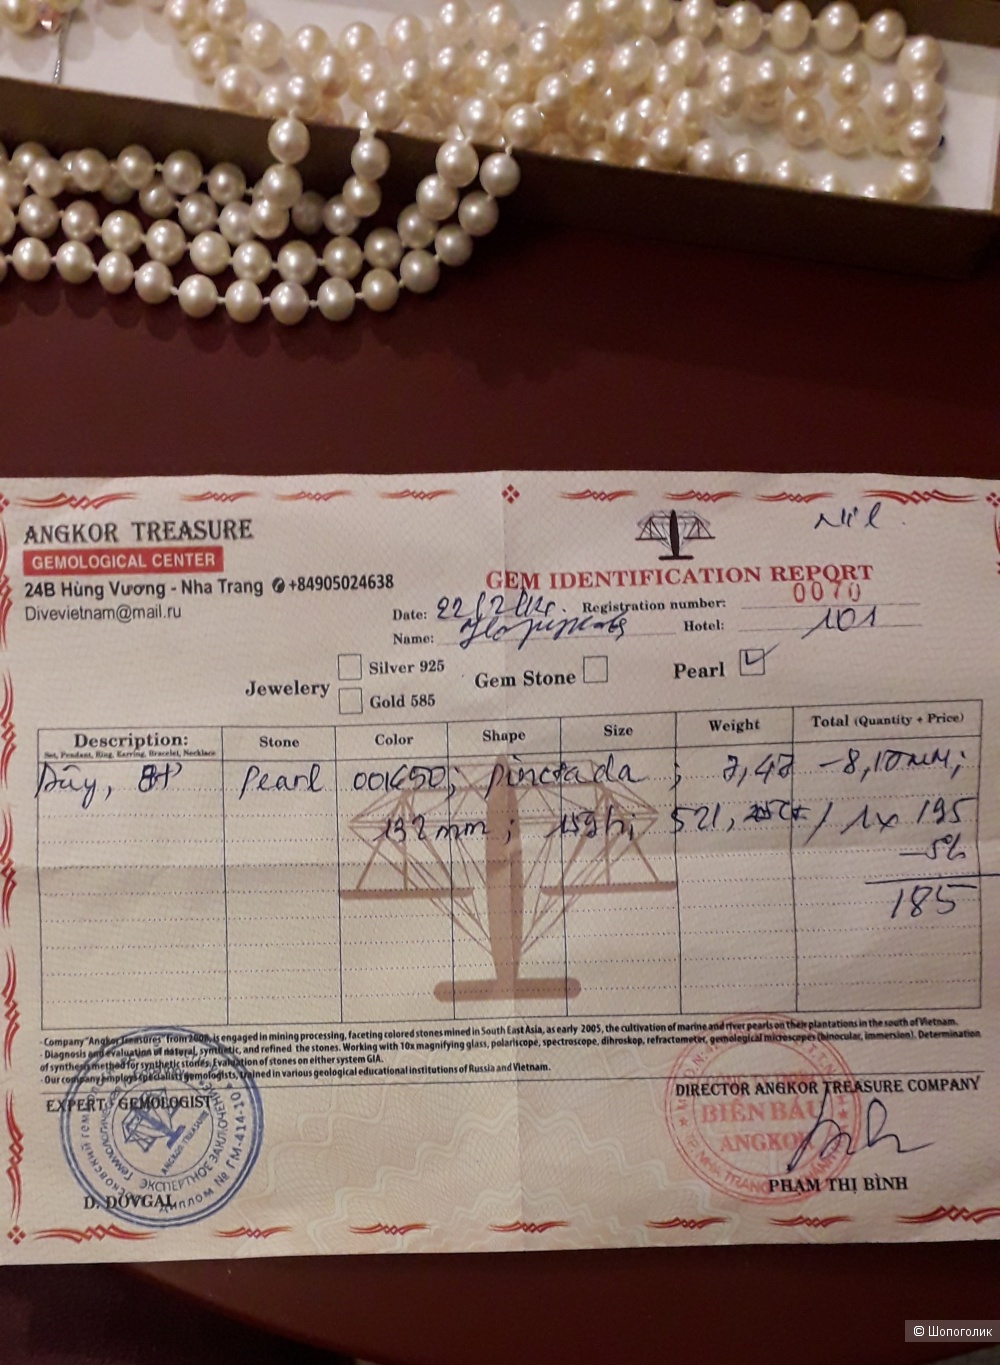 ANGKOR TREASURE
GEMOLOGICAL CENTER
24B Hùng Vương - Nha Trang +84905024638
Divevietnam@mail.ru
GEM IDENTIFICATION REPORT
0070
Date: Registration number:
Name: Hotel: 101
Jewelery Silver 925 Gem Stone Pearl
Gold 585
Description: Stone Color Shape Size Weight Total (Quantity + Price)
Set, Pendant, Ring, Earring, Bracelet, Necklace
Dây, Pearl 001650; pinctada ;
192mm; 521, / 1x 195
-5%
185
- Company "Angkor Treasures" from 2009, is engaged in mining processing, faceting colored stones mined in South East Asia, as early 2005, the cultivation of marine and river pearls on their plantations in the south of Vietnam.
- Diagnosis and evaluation of natural, synthetic, and refined the stones. Working with 10x magnifying glass, polariscope, spectroscope, dihroskop, refractometer, gemological microscopes (binocular, immersion). Determination
of synthesis method for synthetic stones. Evaluation of stones on either system GIA.
- Our company employs specialists gemologists, trained in various geological educational institutions of Russia and Vietnam.
EXPERT - GEMOLOGIST
DIRECTOR ANGKOR TREASURE COMPANY
ANGKOR TREASURE
ЭКСПЕРТНОЕ ЗАКЛЮЧЕНИЕ
ДИПЛОМ № ГМ-414-10
BIỂN BÁU
ANGKOR
D. DOVGAL
PHẠM THỊ BÌNH
© Шопоголик